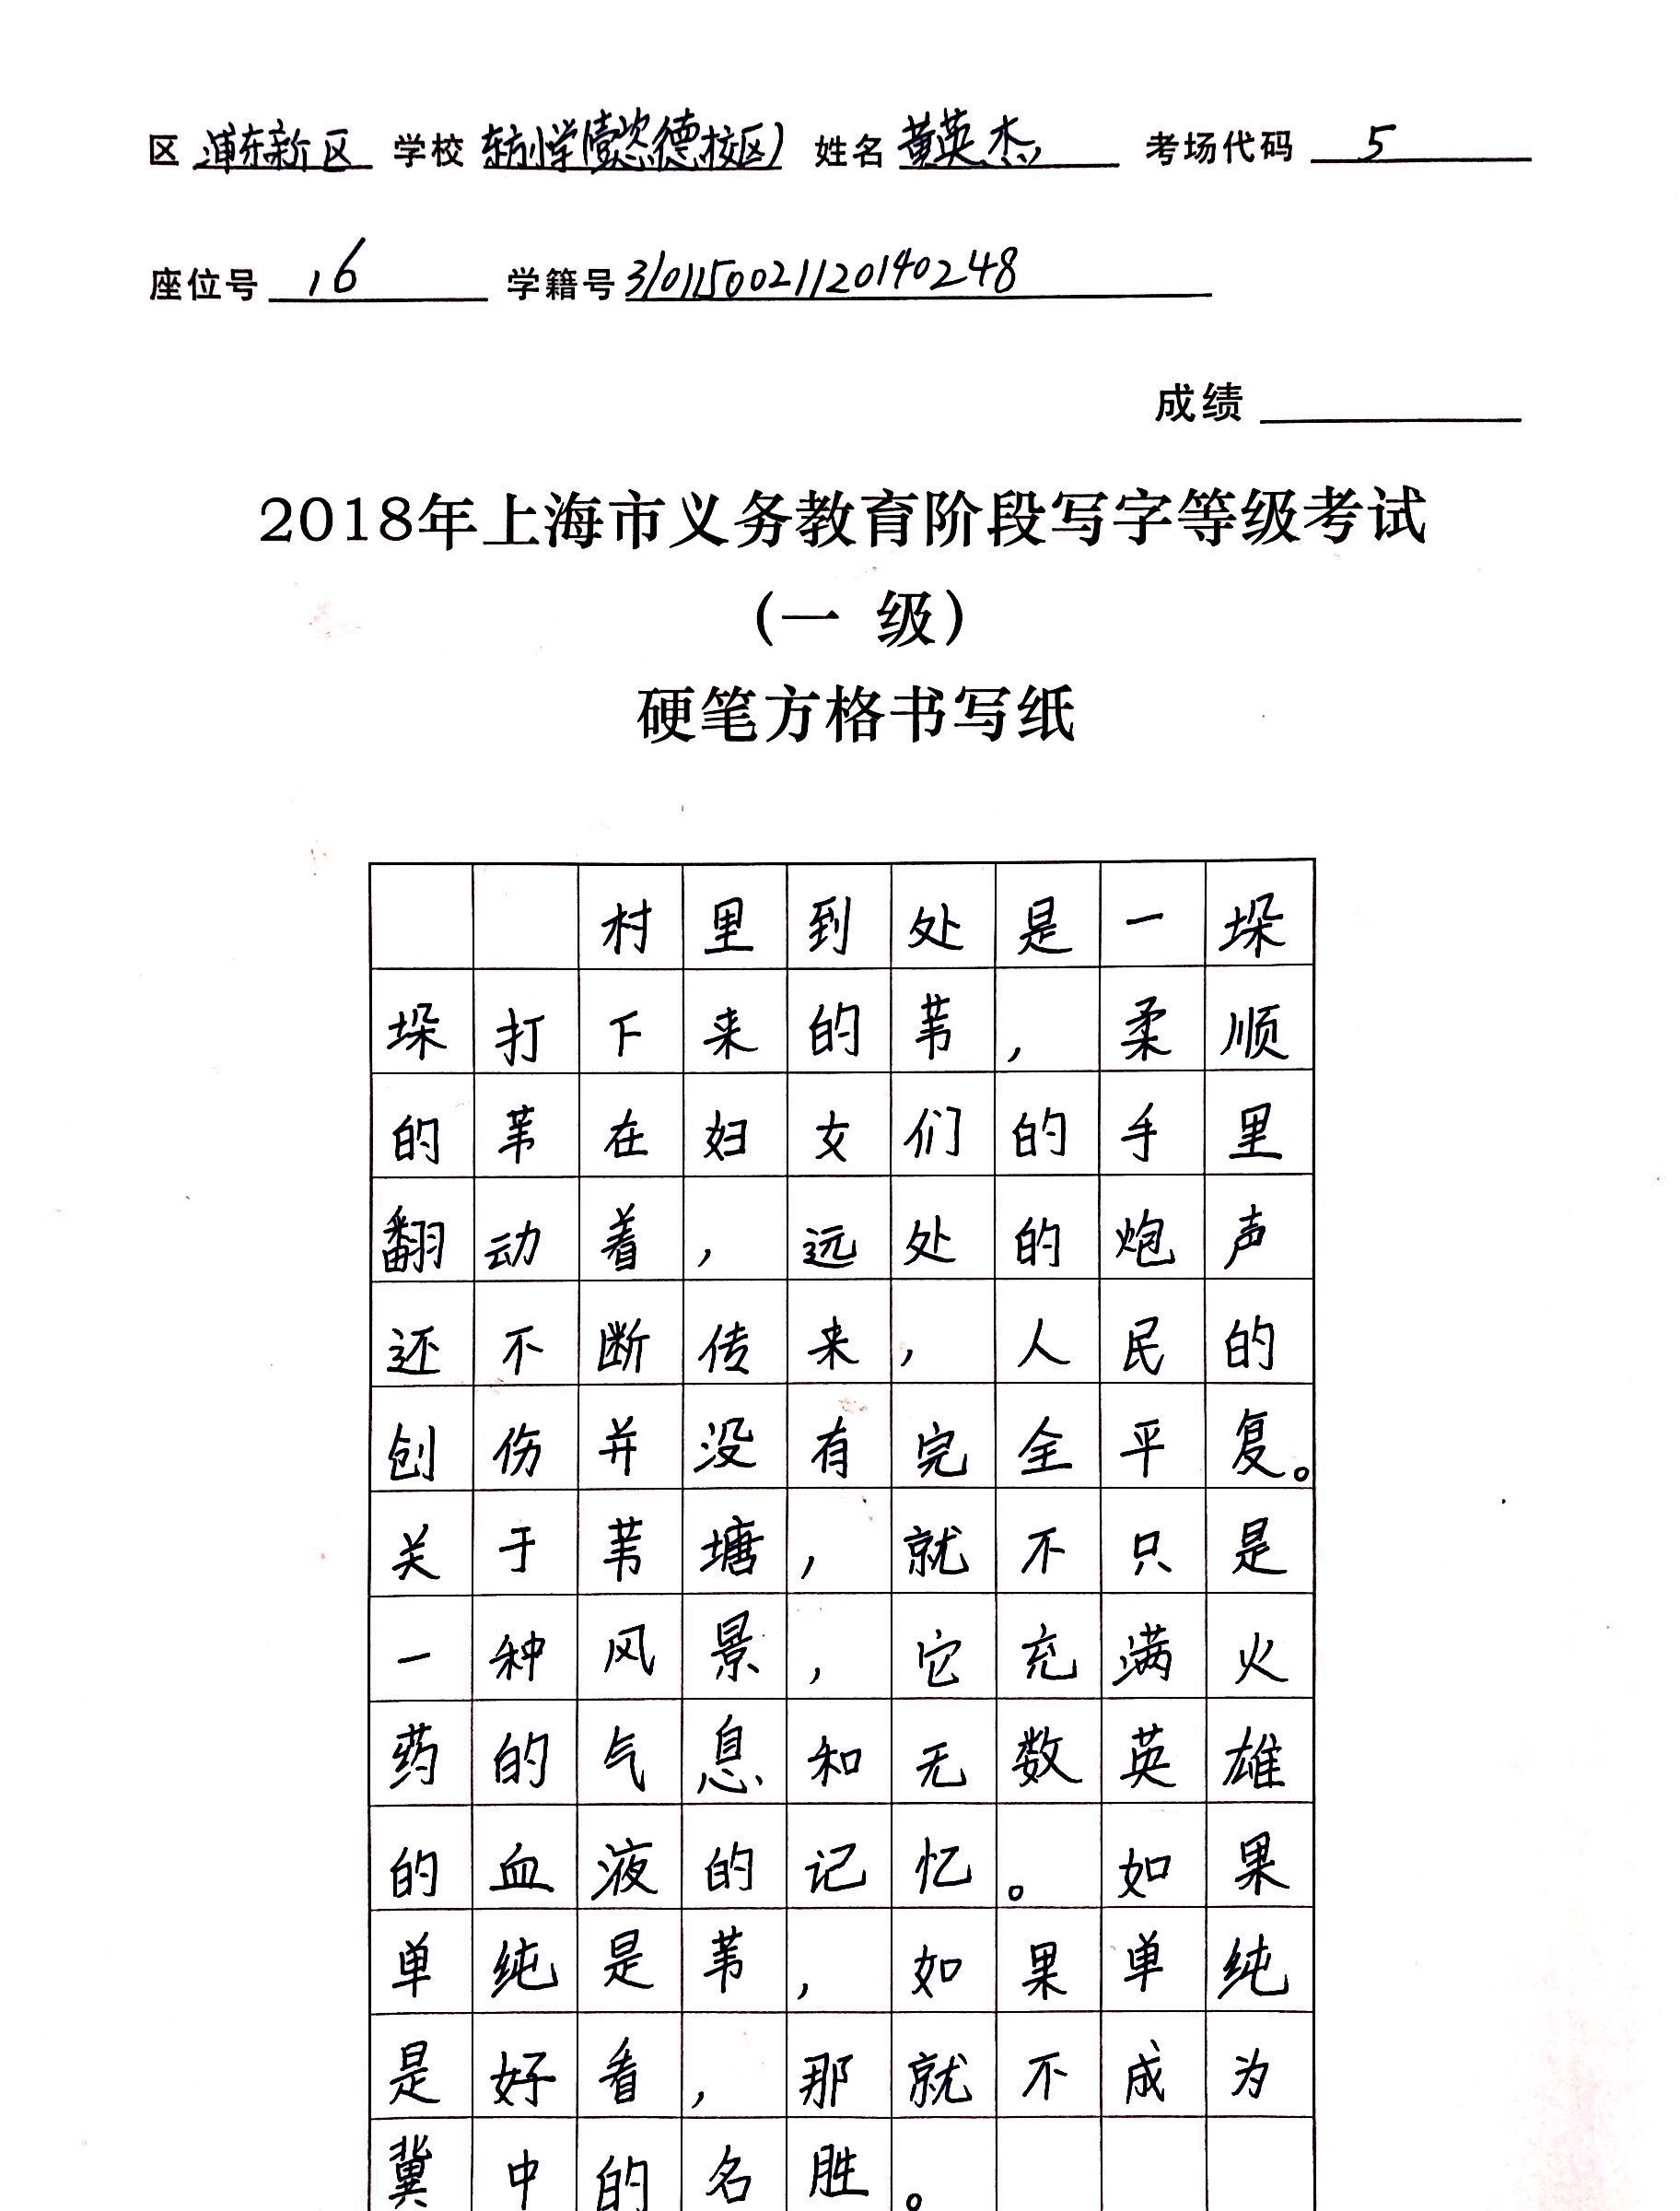 区 浦东新区 学校 东方小学(懿德校区) 姓名 黄英杰 考场代码 5
座位号 16 学籍号 3101150021120140248
成绩
2018年上海市义务教育阶段写字等级考试
(一 级)
硬笔方格书写纸
村里到处是一垛
垛打下来的苇,柔顺
的苇在妇女们的手里
翻动着,远处的炮声
还不断传来,人民的
创伤并没有完全平复。
关于苇塘,就不只是
一种风景,它充满火
药的气息和无数英雄
的血液的记忆。如果
单纯是苇,如果单纯
是好看,那就不成为
冀中的名胜。